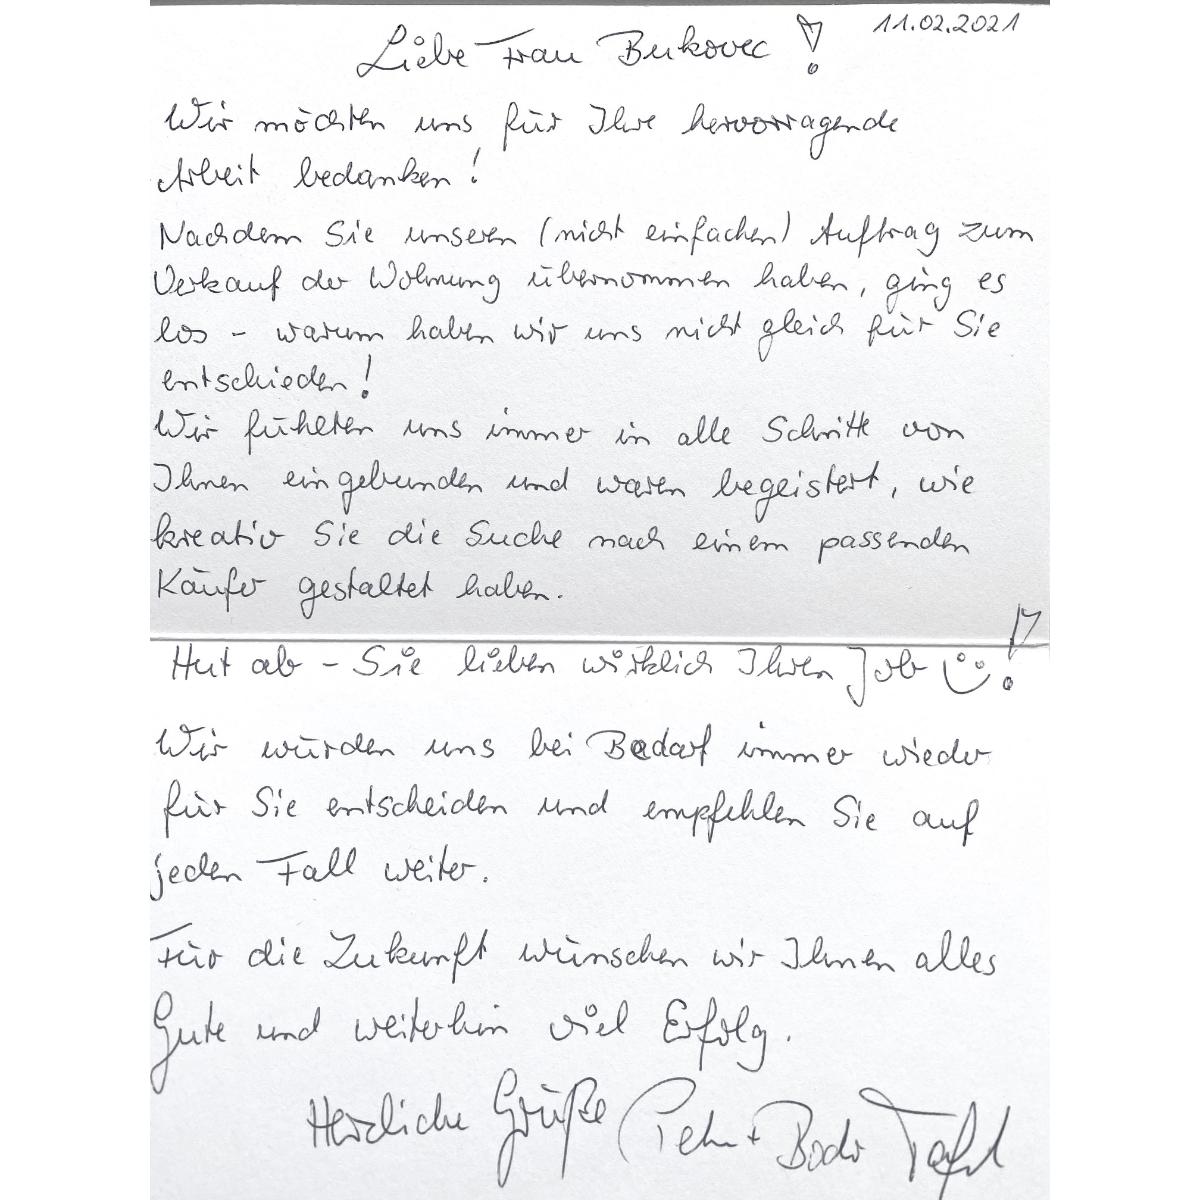 11.02.2021
Liebe Frau Bukovec!
Wir möchten uns für Ihre hervorragende
Arbeit bedanken!
Nachdem Sie unseren (nicht einfachen) Auftrag zum
Verkauf der Wohnung übernommen haben, ging es
los - warum haben wir uns nicht gleich für Sie
entschieden!
Wir fühlten uns immer in alle Schritte von
Ihnen eingebunden und waren begeistert, wie
kreativ Sie die Suche nach einem passenden
Käufer gestaltet haben.
Hut ab - Sie lieben wirklich Ihren Job ☺!
Wir würden uns bei Bedarf immer wieder
für Sie entscheiden und empfehlen Sie auf
jeden Fall weiter.
Für die Zukunft wünschen wir Ihnen alles
Gute und weiterhin viel Erfolg.
Herzliche Grüße + Bodo Tafel